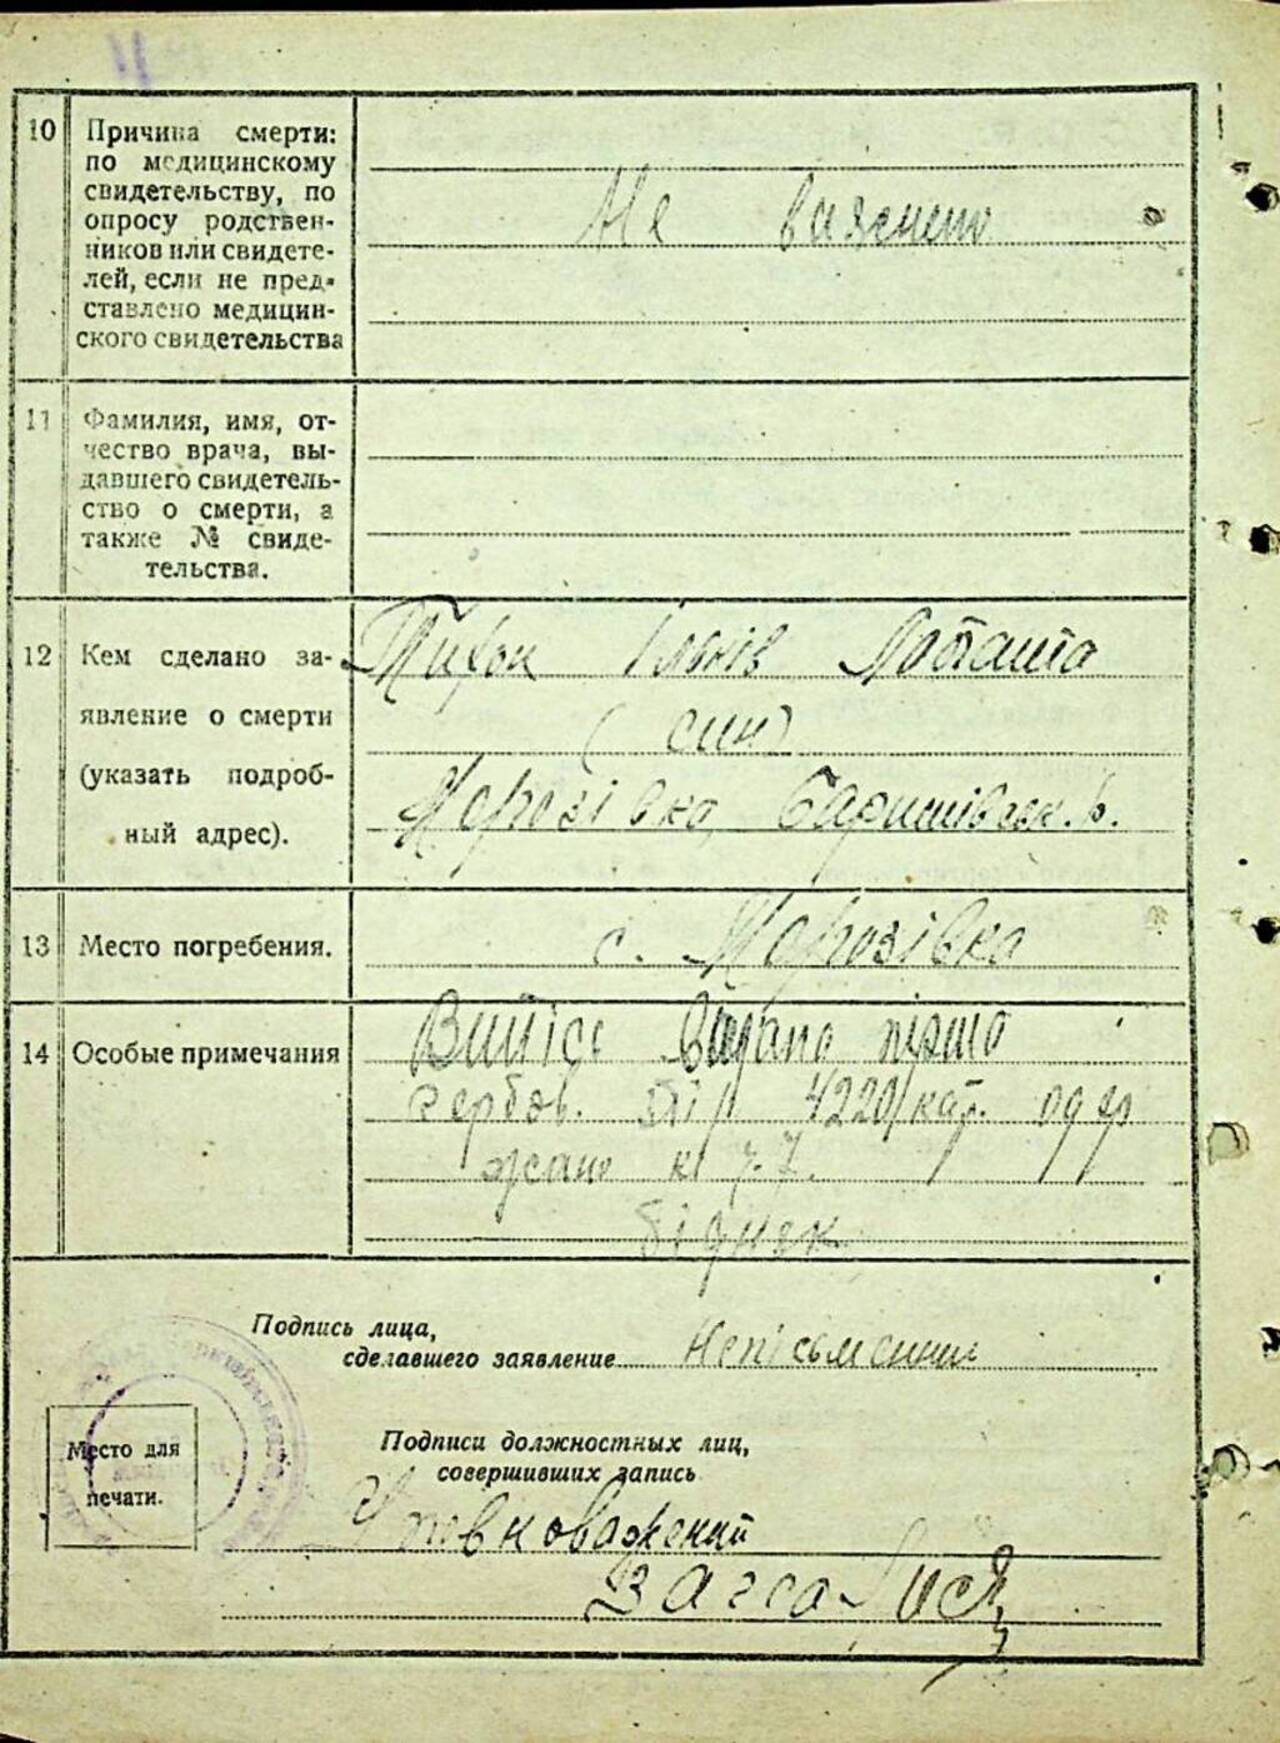 10 Причина смерти:
по медицинскому
свидетельству, по
опросу родствен-
ников или свидете-
лей, если не пред-
ставлено медицин-
ского свидетельства
Не виясчено
11 Фамилия, имя, от-
чество врача, вы-
давшего свидетель-
ство о смерти, а
также № свиде-
тельства.
12 Кем сделано за-
явление о смерти
(указать подроб-
ный адрес).
Лопашта
(син)
Морозівка, Баришівськ. р.
13 Место погребения.
с. Морозівка
14 Особые примечания
Витісі видано перша
гербов. 4220/кар. одер
жано к
бідняк
Подпись лица,
сделавшего заявление
Неписьменний
Место для
печати.
Подписи должностных лиц,
совершивших запись
Уповноважений
загса